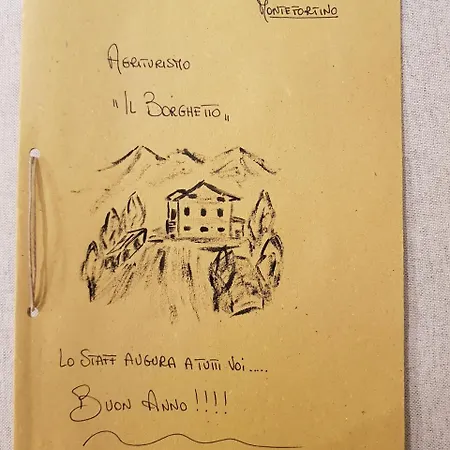 MONTEFORTINO
AGRITURISMO
„IL BORGHETTO„
LO STAFF AUGURA A TUTTI VOI.....
BUON ANNO !!!!